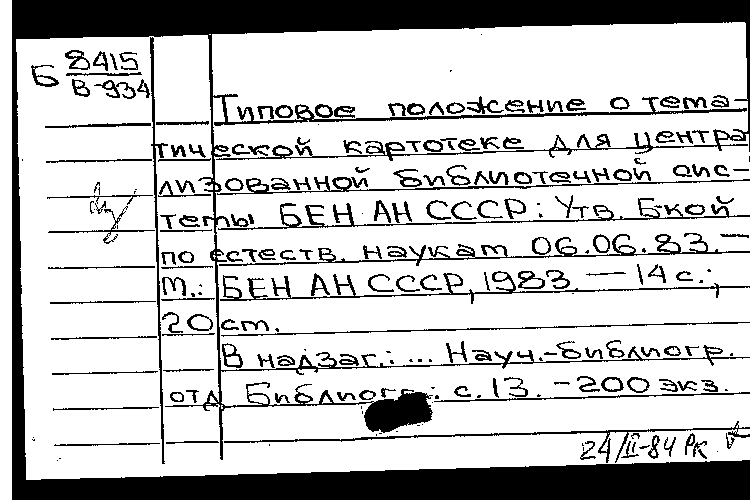 Б 8415
В-934
Типовое положение о тема-
тической картотеке для центра
лизованной библиотечной сис-
темы БЕН АН СССР: Утв. Б-кой
по естеств. наукам 06.06.83.—
М.: БЕН АН СССР, 1983. — 14 с.;
20 см.
В надзаг.: ... Науч.-библиогр.
отд. Библиогр.: с. 13. — 200 экз.
24/II-84 РК